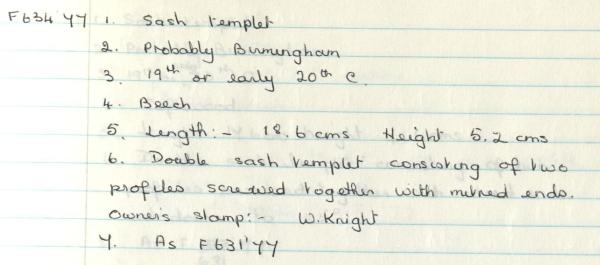 F634'77 1. Sash templet
2. Probably Birmingham
3. 19th or early 20th C.
4. Beech
5. Length:- 18.6 cms Height 5.2 cms
6. Double sash templet consisting of two
profiles screwed together with mitred ends.
Owner's stamp:- W. Knight
7. As F631'77